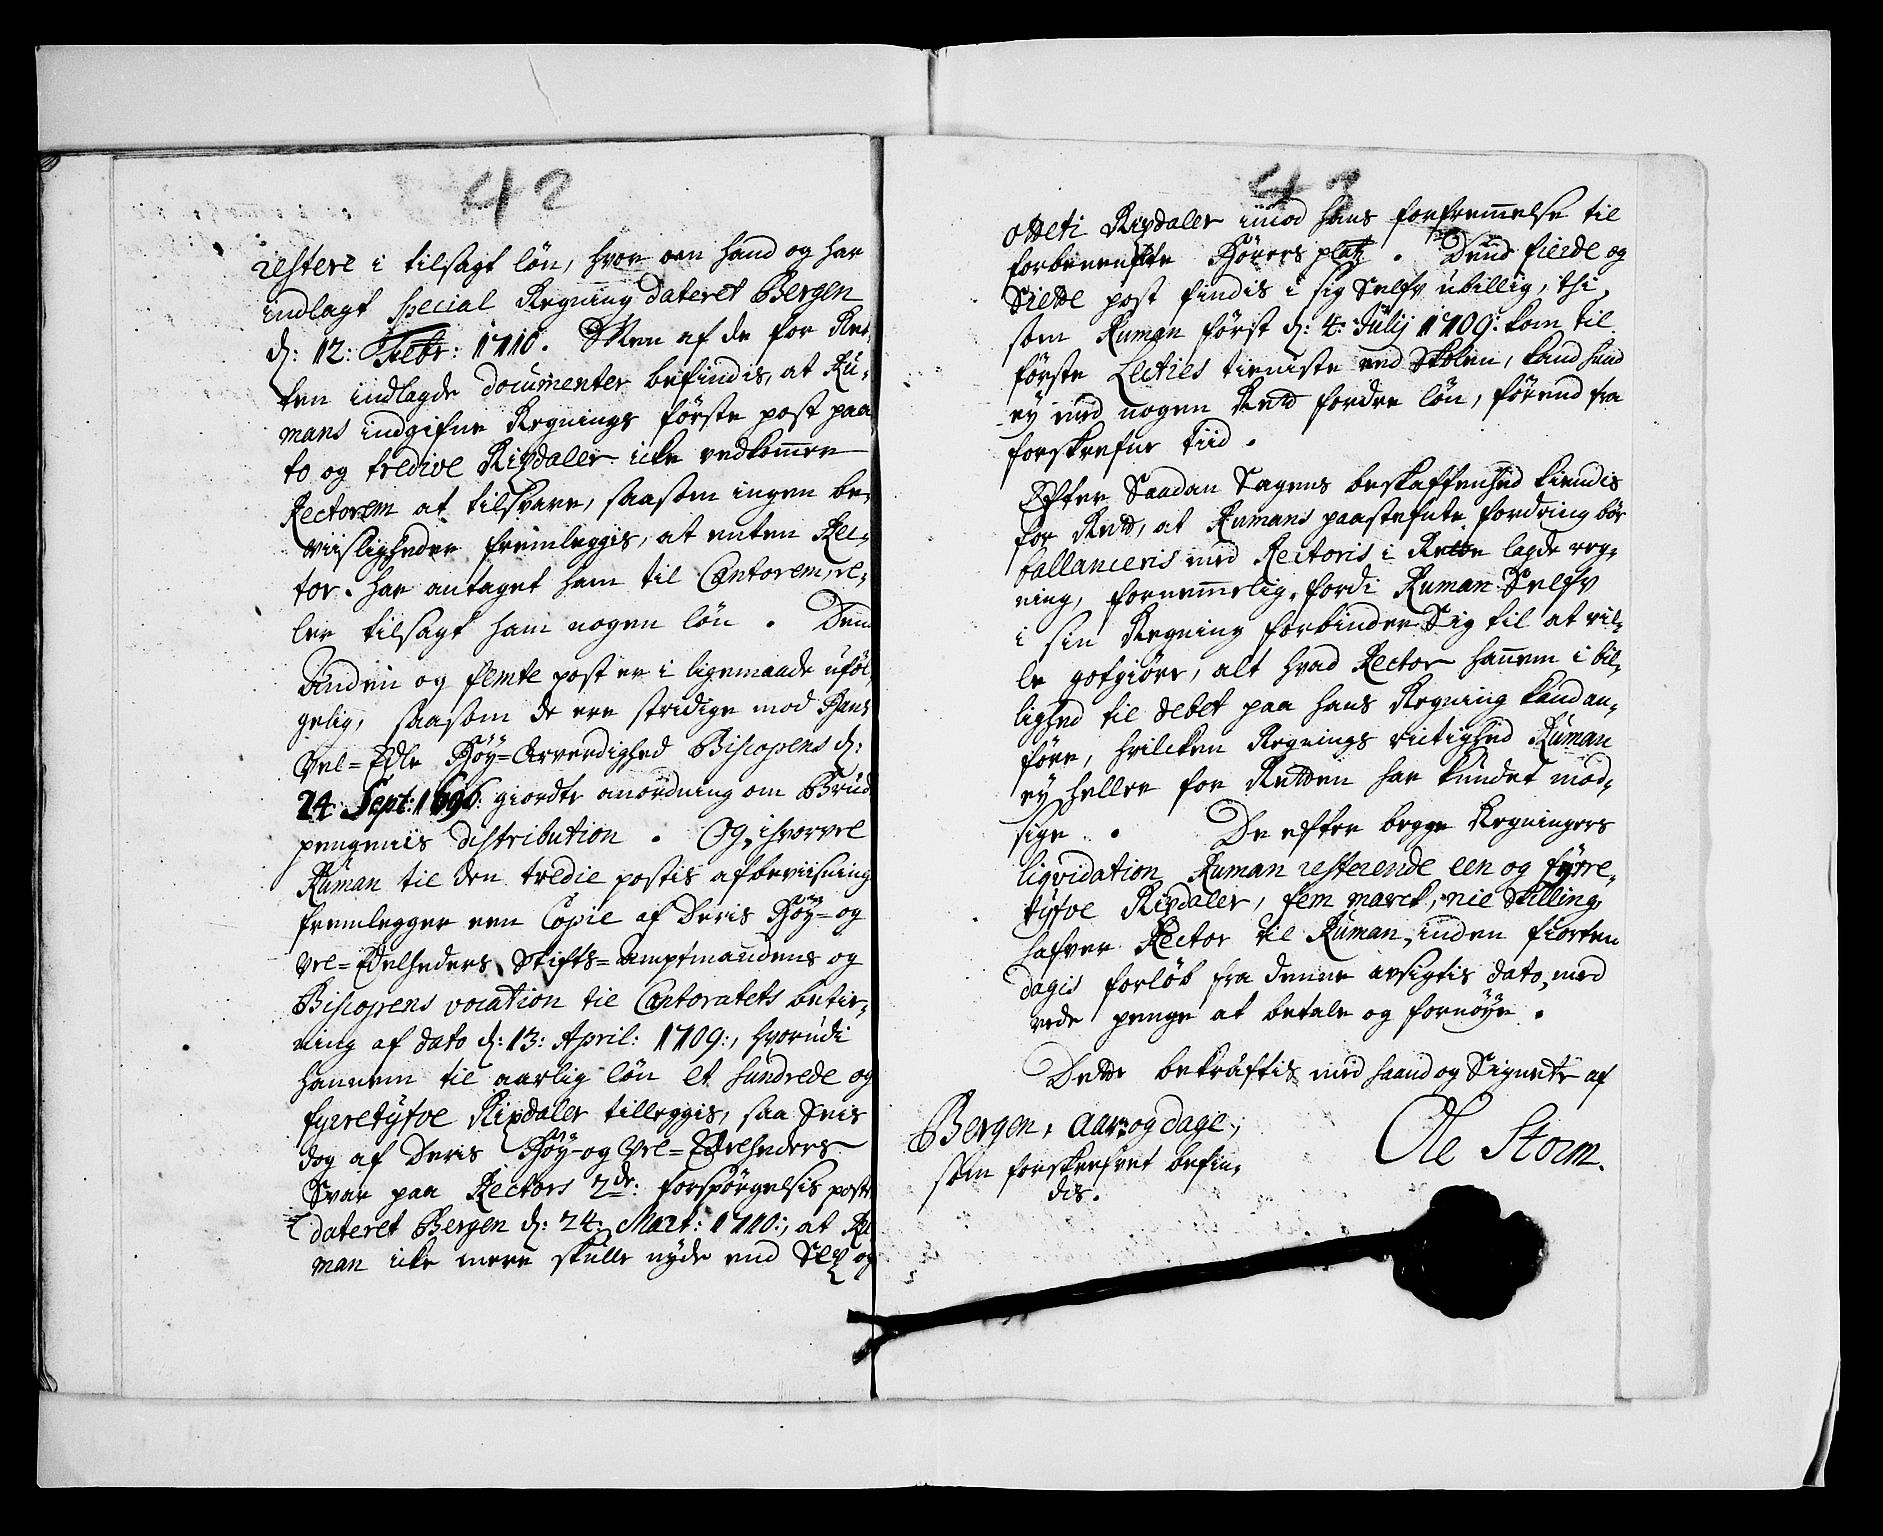 42
restere i tilsagt lön, hvor om hand og har
indlagt special Regning dateret Bergen
d: 12: Febr: 1710. Men af de for Ret-
ten indlagde documenter befindis, at Ru-
mans indgifne Regnings förste post paa
to og tredive Rixdaler icke vedkommer
Rectorem at tilsvare, saasom ingen be-
viisligheder fremleggis, at enten Rec-
tor har antaget ham til Cantorem, el-
ler tilsagt ham nogen lön. Den
Anden og femte post er i ligemaade uföl-
gelig, saasom de ere stridige mod Hans
Vel=Edle Höy=Ærverdighed Biscopens d:
24. Sept: 1696: giordte anordning om Brud
pengenis distribution. Og, ihvorvel
Ruman til den tredie postis afbeviisning
fremlegger een Copie af Deris Höy= og
Vel=Edelheders Stifts=Amptmandens og
Biscopens vocation til Cantoratets betie-
ning af dato d: 13: April: 1709:, hvorudi
hannem til aarlig lön et hundrede og
fyrretyfve Rixdaler tilleggis, saa sees
dog af Deris Höy-og Vel=Edelheders
Svar paa Rectors 2de: forspörgelsis poster
dateret Bergen d: 24: Mart: 1710:, at Ru
man icke mere skulle nyde end Sex og
43
otteti Rixdaler imod hans forfremmelse til
forbenenfte Hörers platz. Dend fierde og
Siette post findis i sig Selfv ubillig, thi
som Ruman först d: 4: Julij 1709: kom til
förste Lecties tieniste ved Skolen, kand hand
ey med nogen Rett fordre lön, förend fra
forskrefne tiid.
Efter Saadan Sagens beskaffenhed kiendis
for Rett, at Rumans paastefnte fordring bör
ballanceris med Rectoris i Rette lagde reg-
ning, fornemmelig, fordi Ruman Selfv
i sin Regning forbinder Sig til at vil-
le gotgiöre, alt hvad Rector hannem i bil-
lighed til debet paa hans Regning kand an-
före, hvilcken Regnings rictighed Ruman
ey heller for Retten har kundet mod-
sige. De efter begge Regningers
liqvidation Ruman resterende een og fyrre-
tyfve Rixdaler, fem marck, nie Skilling,
hafver Rector til Ruman, inden fiorten
dagis forlöb fra denne avsigtis dato, med
rede penge at betale og fornöye.
Dette bekräftis med haand og Signete af
Bergen, Aar og dage,
som forskrefvet befin-
dis.
Ole Storm.